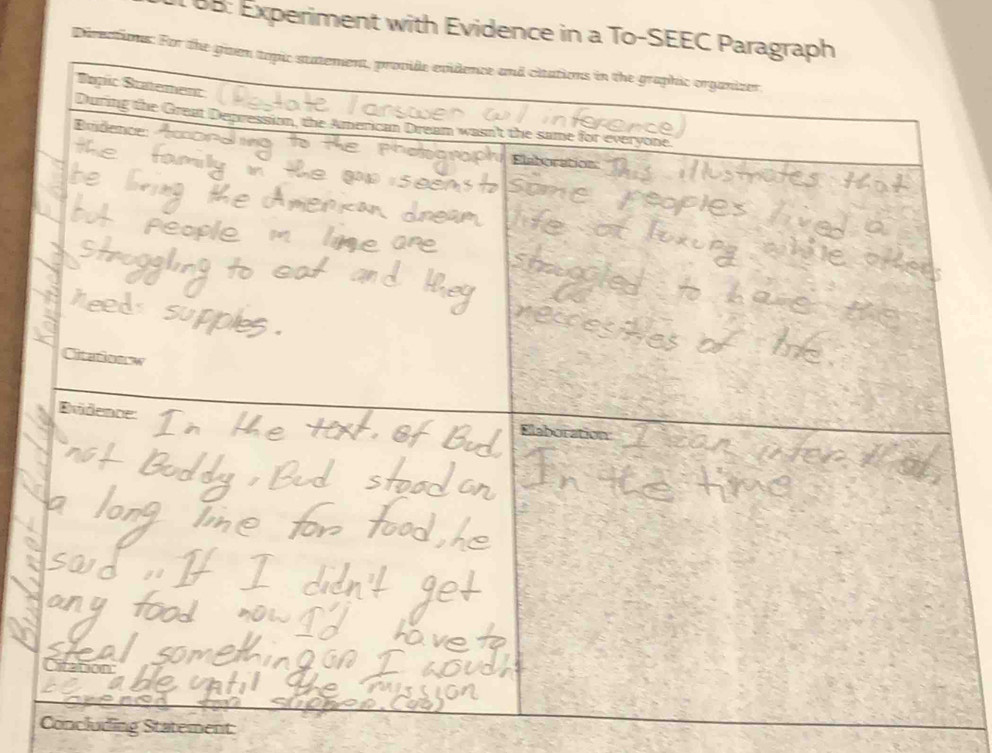 6B: Experiment with Evidence in a To-SEEC Paragraph
Directions: For the given topic statement, provide evidence and citations in the graphic organizer.
Topic Statement: (Restate / answer w/ inference)
During the Great Depression, the American Dream wasn't the same for everyone.
Evidence: According to the photograph
the family in the seems to
be living the American dream
but people in line are
struggling to eat and they
needs supples.
Citation:w
Elaboration: This illustrates that
some peoples lived a
life of luxury while others
struggled to have the
neccesities of life.
Evidence: In the text. of Bud,
not Buddy, Bud stood on
a long line for food, he
said "If I didn't get
any food now I'd have to
steal something or I woudn't
Citation:
be able until the mission
opened for supper.
Elaboration: I can infer that,
In the time
Concluding Statement:
Kentucky Flood
Bud, not Buddy